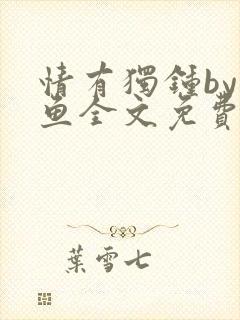 情有獨鍾by
魚全文免費
葉雪七